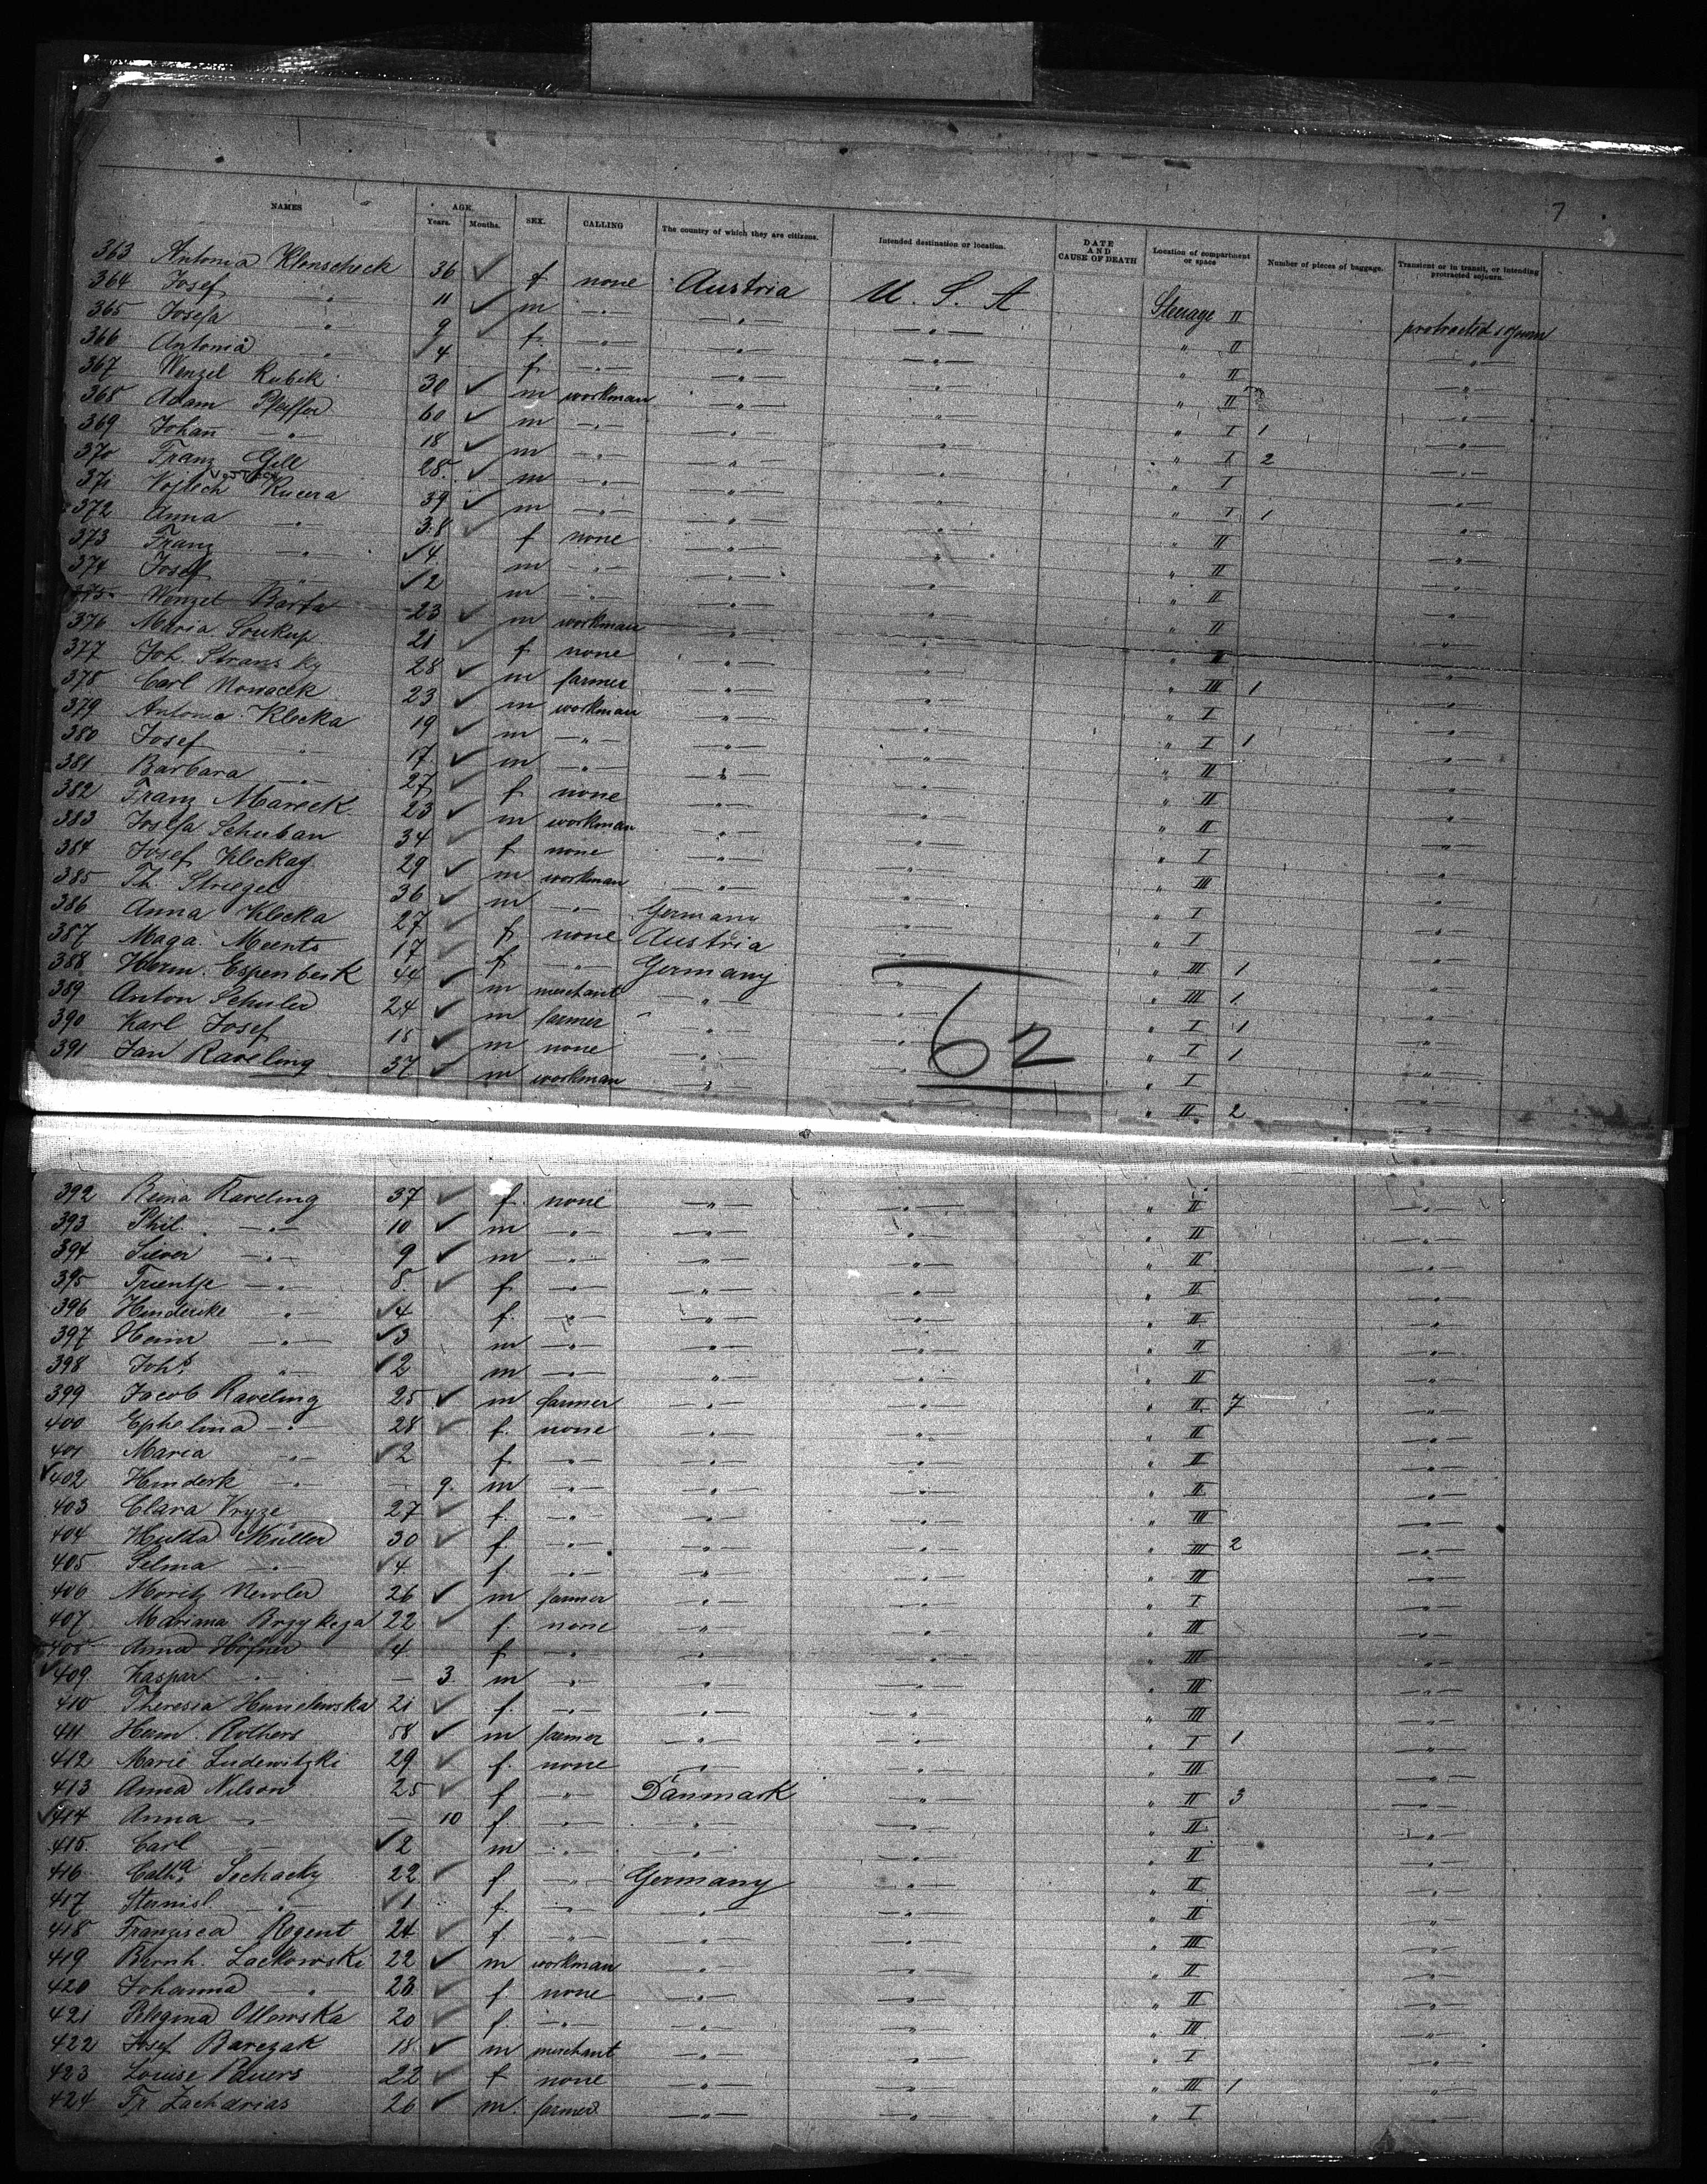 7
NAMES AGE. Years. Months. SEX. CALLING The country of which they are citizens. Intended destination or location. DATE AND CAUSE OF DEATH Location of compartment or space Number of pieces of baggage. Transient or in transit, or intending protracted sojourn.
363 Antonia Klonscheck 36 ✓ f none Austria U. S. A Steerage II protracted sojourn
364 Josef —"— 11 ✓ m —"— —"— —"— " II —"—
365 Josefa —"— 9 ✓ f. —"— —"— —"— " II —"—
366 Antonia —"— ✓ 4 f. —"— —"— —"— " II —"—
367 Wenzel Kubik 30 ✓ m workman —"— —"— " I 1 —"—
368 Adam Pfeiffer 60 ✓ m —"— —"— —"— " I 2 —"—
369 Johan̅ —"— 18 ✓ m —"— —"— —"— " I —"—
370 Franz Gell 28. ✓ m —"— —"— —"— " I 1 —"—
371 Vojtech Kucera 39 ✓ m —"— —"— —"— " II —"—
372 Anna —"— 38 ✓ f none —"— —"— " II —"—
373 Franz —"— ✓ 4. m —"— —"— —"— " II —"—
374 Josef —"— ✓ 2 m —"— —"— —"— " II —"—
375 Wenzel Barta 23 ✓ m workman —"— —"— " II —"—
376 Maria Soukup 21 ✓ f none —"— —"— " III 1 —"—
377 Joh. Stransky 28 ✓ m farmer —"— —"— " I —"—
378 Carl Nowacek 23 ✓ m workman —"— —"— " I 1 —"—
379 Antonia Klecka 19 ✓ m —"— —"— —"— " II —"—
380 Josef —"— 17 ✓ m —"— —"— —"— " II —"—
381 Barbara —"— 27 ✓ f none —"— —"— " II —"—
382 Franz Mareck 23 ✓ m workman —"— —"— " I —"—
383 Josefa Schuban 34 ✓ f none —"— —"— " III —"—
384 Josef Kleckay 29 ✓ m workman —"— —"— " I —"—
385 Th. Striegel 36 ✓ m —"— Germany —"— " I —"—
386 Anna Klecka 27 ✓ f none Austria —"— " III 1 —"—
387 Maga. Meents 17 ✓ f —"— Germany —"— " III 1 —"—
388 Herm. Espenbeck 44 ✓ m merchant —"— —"— " I 1 —"—
389 Anton Schuler 24 ✓ m farmer —"— —"— " I 1 —"—
390 Karl Josef 18 ✓ m none —"— —"— " I —"—
391 Jan Raveling 37 ✓ m workman —"— —"— " II 2 —"—
62
392 Raveling 37 ✓ f. none —"— —"— " II —"—
393 Phil. —"— 10 ✓ m —"— —"— —"— " II —"—
394 Siever —"— 9 ✓ m —"— —"— —"— " II —"—
395 Trientje —"— 8 ✓ f —"— —"— —"— " II —"—
396 Hinderike —"— ✓ 4 f. —"— —"— —"— " II —"—
397 Heinr —"— ✓ 3 m —"— —"— —"— " II —"—
398 Johs. —"— ✓ 2 m —"— —"— —"— " II —"—
399 Jacob Raveling 25 ✓ m farmer —"— —"— " II 7 —"—
400 Ephelina —"— 28 ✓ f. none —"— —"— " II —"—
401 Maria —"— ✓ 2 f. —"— —"— —"— " II —"—
✓ 402 Hinderk —"— — 9. m —"— —"— —"— " II —"—
403 Clara Vryze 27 ✓ f. —"— —"— —"— " III —"—
404 Hulda Müller 30 ✓ f —"— —"— —"— " III 2 —"—
405 Selma —"— ✓ 4 f. —"— —"— —"— " III —"—
406 Moritz Newler 26 ✓ m farmer —"— —"— " I —"—
407 Mariana Brzykeza 22 ✓ f. none —"— —"— " III —"—
408 Anna Höfner 4 f —"— —"— —"— " III —"—
✓ 409. Kaspar —"— — 3. m —"— —"— —"— " III —"—
410 Theresia 21 ✓ f. —"— —"— —"— " III —"—
411 Herm. Rolhers 58 ✓ m farmer —"— —"— " I 1 —"—
412 Marie Ludewitzki 29 ✓ f. none —"— —"— " III —"—
413 Anna Nilson 25 ✓ f —"— Danmark —"— " II 3 —"—
✓ 414 Anna —"— — 10 f —"— —"— —"— " II —"—
415. Carl —"— ✓ 2 m —"— —"— —"— " II —"—
416 Catha. Sochacky 22 ✓ f —"— Germany —"— " II —"—
417 Stanisl. —"— ✓ 1 f. —"— —"— —"— " II —"—
418 Franzisca Regent 24 ✓ f —"— —"— —"— " III —"—
419 Bernh. Lackowski 22 ✓ m workman —"— —"— " II —"—
420 Johanna —"— 23 ✓ f. none —"— —"— " II —"—
421 Pelegina Ollowska 20 ✓ f. —"— —"— —"— " III —"—
422 Josef Barczak 18 ✓ m merchant —"— —"— " I —"—
423 Louise 22 ✓ f none —"— —"— " III 1 —"—
424 Fr Zacharias 26 ✓ m. farmer —"— —"— " I —"—